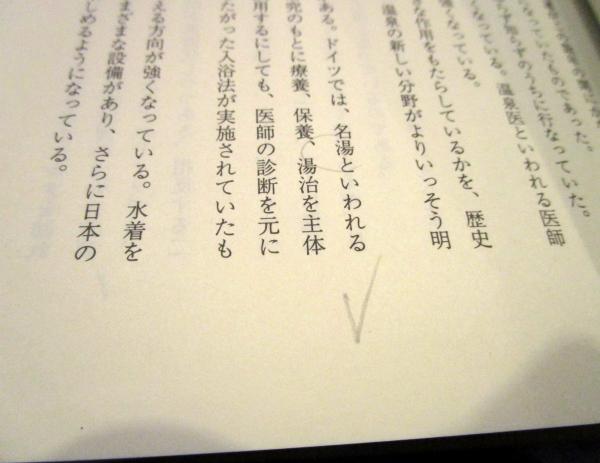 なっていたものであった。
らず知らずのうちに行なっていた。
なっている。温泉医といわれる医師
くなっている。
な作用をもたらしているかを、歴史
温泉の新しい分野がよりいっそう明
ある。ドイツでは、名湯といわれる
究のもとに療養、保養、湯治を主体
用するにしても、医師の診断を元に
たがった入浴法が実施されていたも
える方向が強くなっている。水着を
まざまな設備があり、さらに日本の
しめるようになっている。